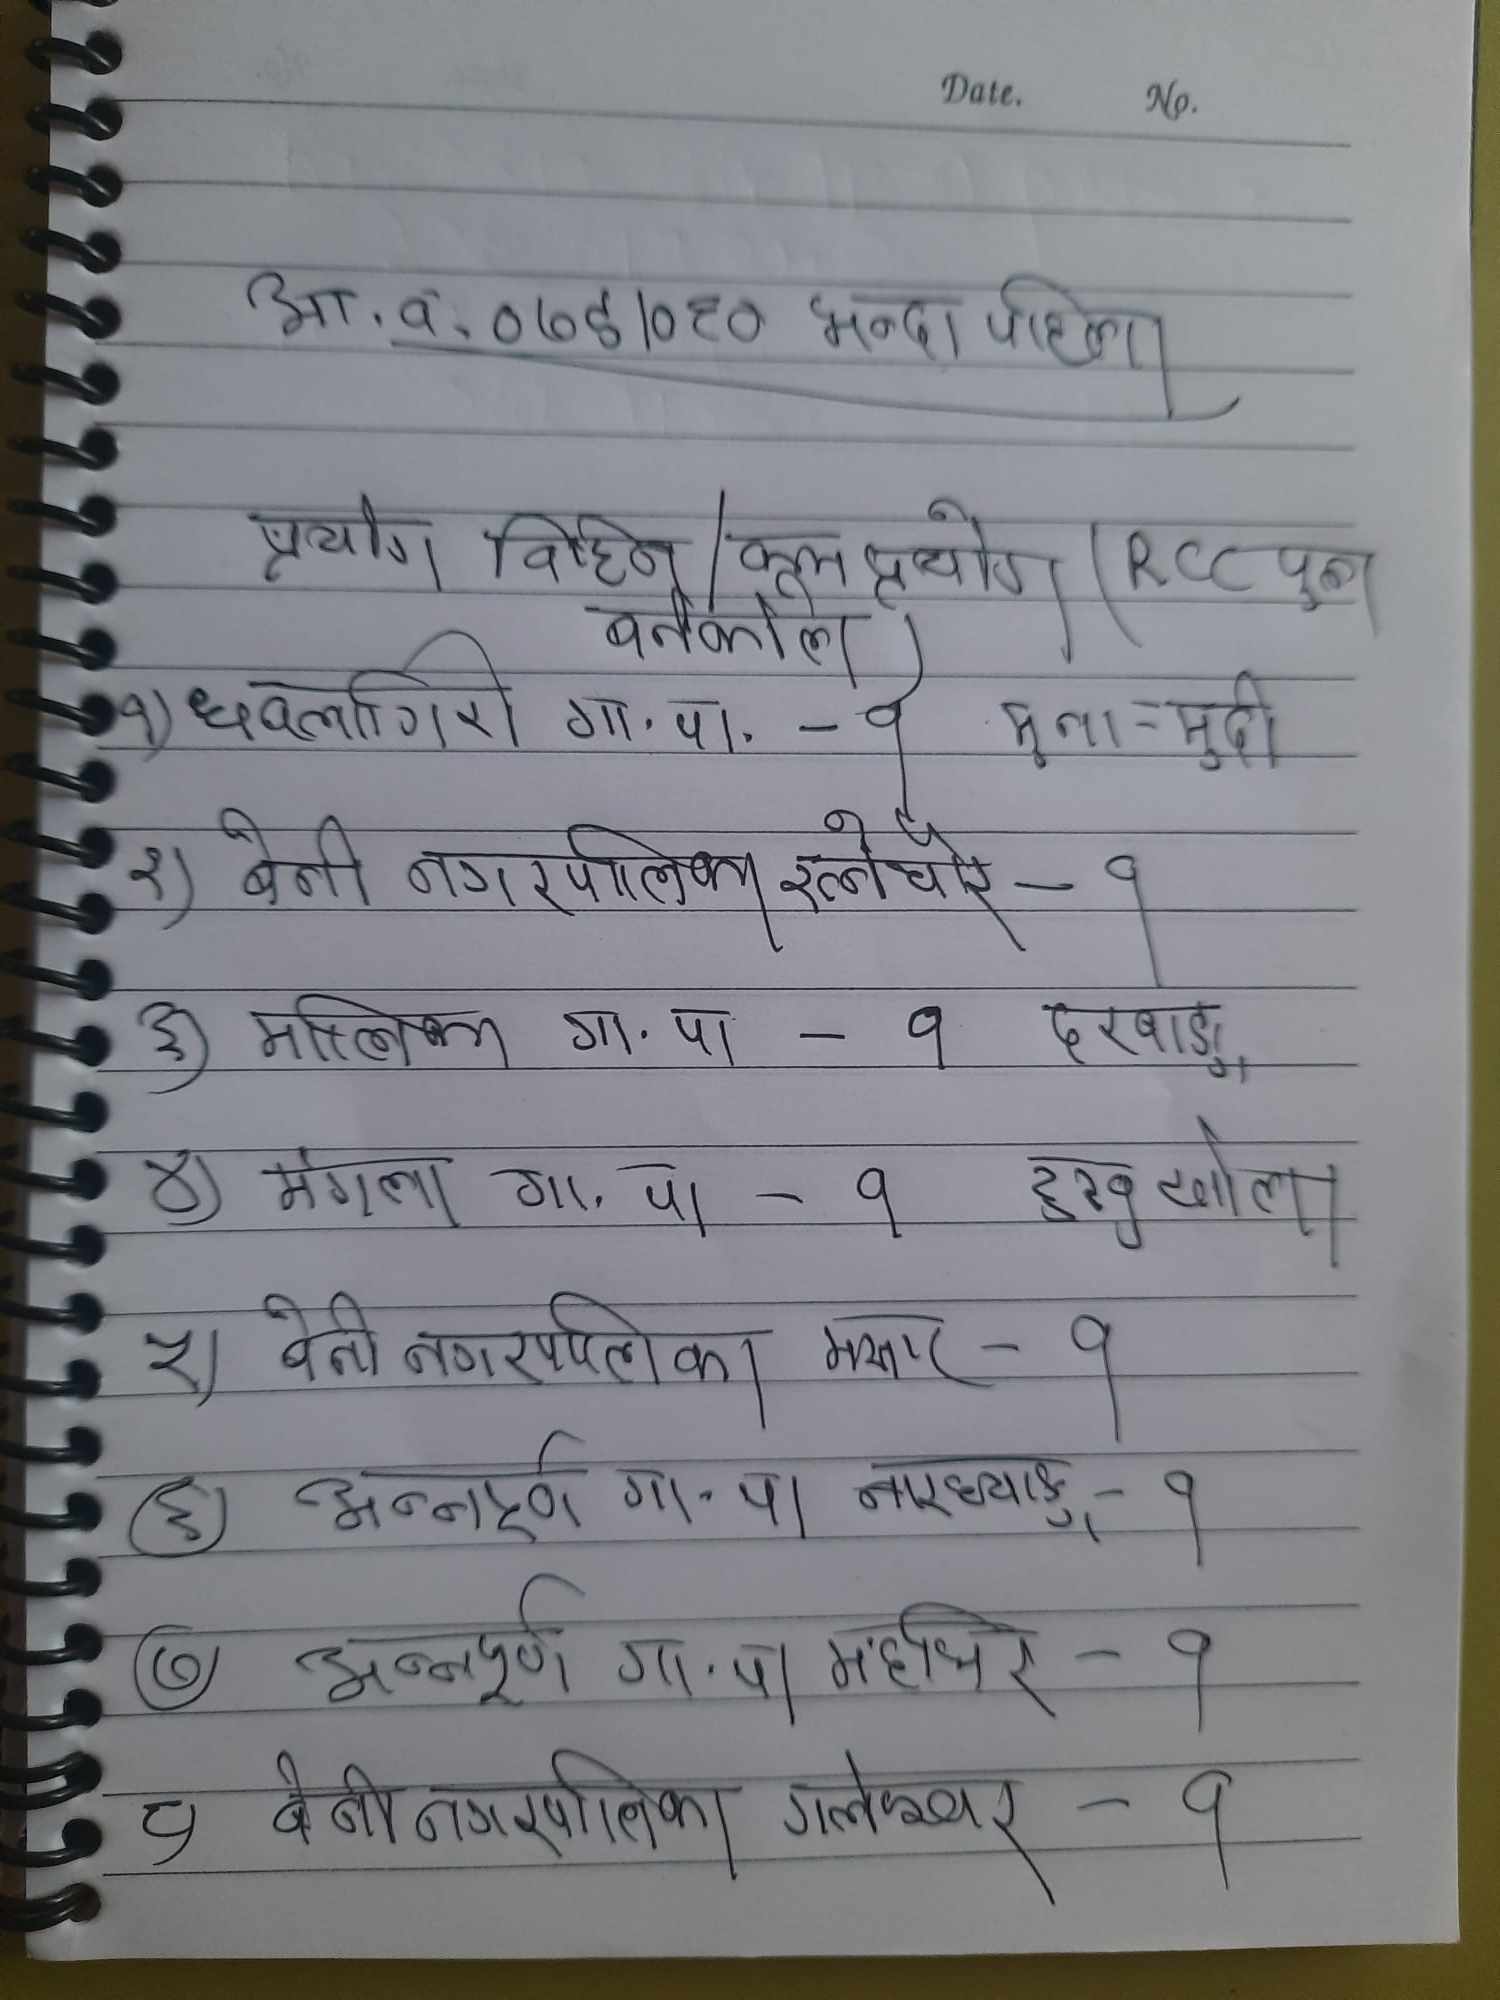 Date. No.
आ.व. ०७९/०८० भन्दा पहिला
प्रयोग विहिन/कम प्रयोग (RCC पुल
बनेकोले)
१) धवलागिरी गा.पा. - १ मुना-मुदी
२) बेनी नगरपालिका रत्नेचौर - १
३) मालिका गा.पा - १ दरबाङ
४) मंगला गा.पा - १ दुखु खोला
५) बेनी नगरपालिका भखार - १
६) अन्नपूर्ण गा.पा नारच्याङ - १
७ अन्नपूर्ण गा.पा महभिर - १
८) बेनी नगरपालिका गलेश्वर - १